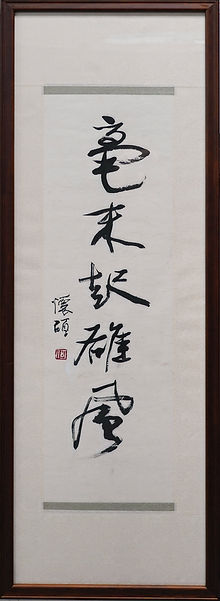 毫末起雄風
懷碩